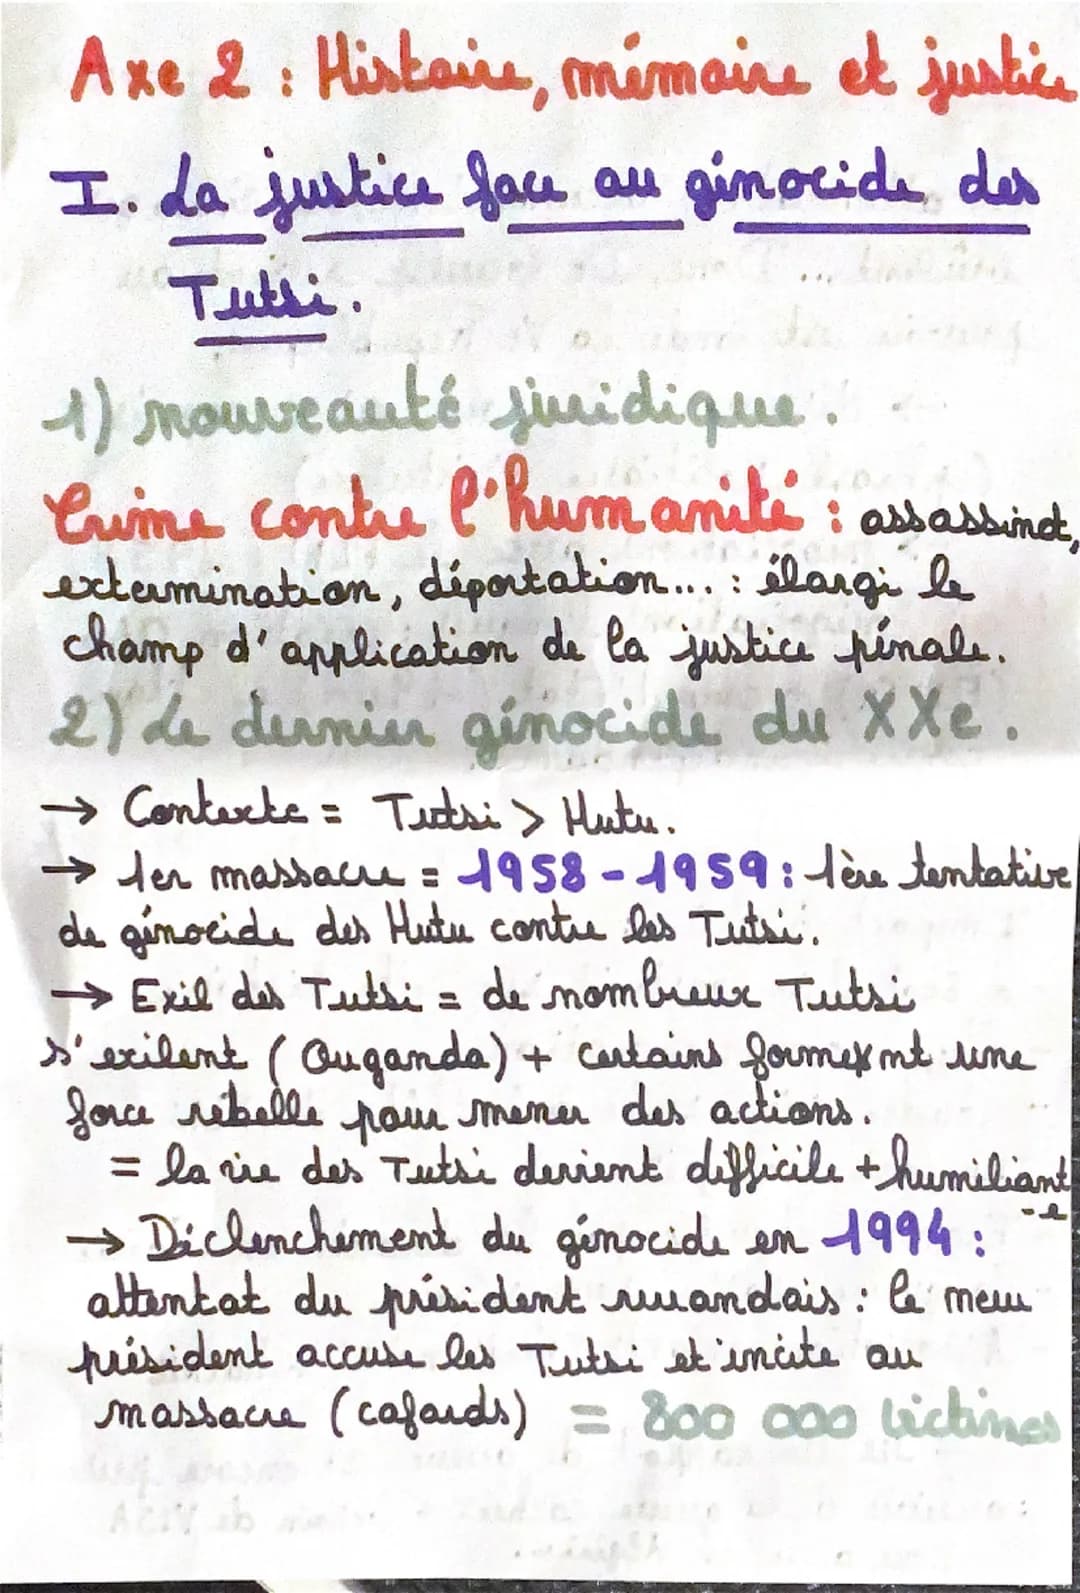 Axe 2 : Histoire, mémoire et justice
I. La justice face au génocide des
Tutsi.
1) nouveauté juridique.
Crime contre l'humanité : assassinat,
extermination, déportation... : élargi le
champ d'application de la justice pénale.
2) Le dernier génocide du XXe.
→ Contexte = Tutsi > Hutu.
→ 1er massacre = 1958-1959 : 1ère tentative
de génocide des Hutu contre les Tutsi.
→ Exil des Tutsi = de nombreux Tutsi
s'exilent (Ouganda) + certains forment une
force rebelle pour mener des actions.
= la vie des Tutsi devient difficile + humiliant
-e
→ Déclenchement du génocide en 1994 :
attentat du président ruandais : le new
président accuse les Tutsi et incite au
massacre (cafards) = 800 000 victimes